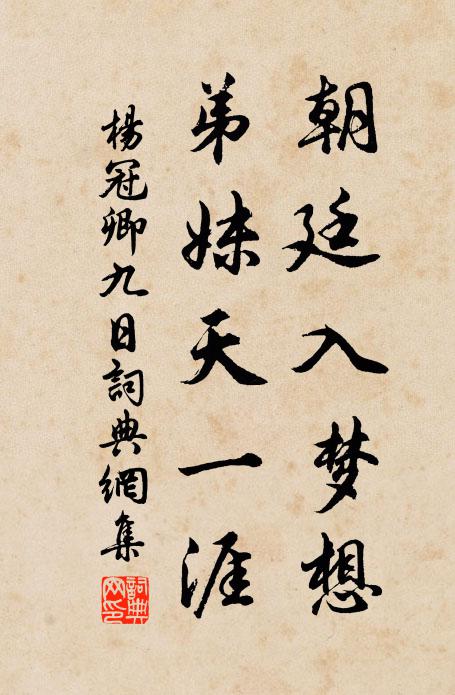 朝廷入梦想
弟妹天一涯
楊冠卿九日詞典網集
詞典
网印